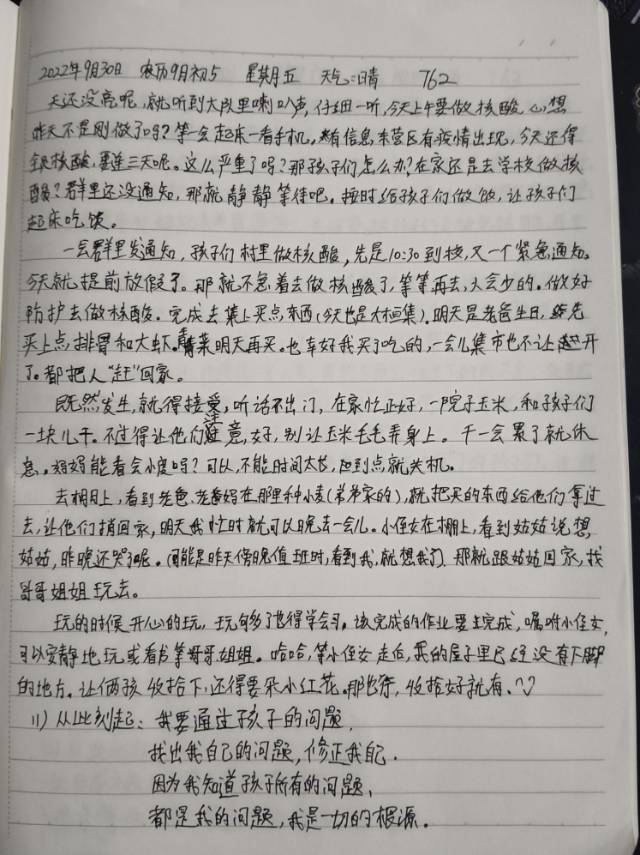 2022年9月30日 农历9月初5 星期五 天气:晴 762
天还没亮呢,就听到大队里喇叭声,仔细一听,今天上午要做核酸,心想
昨天不是刚做了吗?等一会起来一看手机,有信息东营区有疫情出现,今天还得
做核酸,要连三天呢。这么严重了吗?那孩子们怎么办?在家还是去学校做核
酸?群里还没通知,那就静静等待吧。按时给孩子们做饭,让孩子们
起床吃饭。
一会群里发通知,孩子们村里做核酸,先是10:30到校,又一个紧急通知,
今天就提前放假了。那就不急着去做核酸了,等等再去,人会少的。做好
防护去做核酸。完成去集上买点东西(今天也是大桓集).明天是老爸生日,先
买上点排骨和大虾.青菜明天再买。也幸好我买了吃的,一会儿集市也不让开
了。都把人“赶”回家。
既然发生,就得接受,听话不出门,在家忙正好,一院子玉米,和孩子们
一块儿干。不过得让他们注意,好,别让玉米毛毛弄身上。干一会累了就休
息。妈妈能看会小度吗?可以,不能时间太长,到点就关机。
去棚上,看到老爸、老妈在那里种小麦(弟弟家的),就把买的东西给他们拿过
去,让他们捎回家,明天我忙时就可以晚去一会儿。小侄女在棚上,看到姑姑说想
姑姑,昨晚还哭了呢。(可能是昨天傍晚值班时,看到我,就想我了).那就跟姑姑回家,找
哥哥姐姐玩去。
玩的时候开心的玩,玩够了也得学会学习。该完成的作业要去完成,嘱咐小侄女,
可以安静地玩或看书等哥哥姐姐。哈哈,等小侄女走后,我的屋子里已经没有下脚
的地方。让俩孩收拾下,还得要朵小红花。那也行,收拾好就有。
11)从此刻起:我要通过孩子的问题,
找出我自己的问题,修正我自己.
因为我知道孩子所有的问题,
都是我的问题,我是一切的根源。